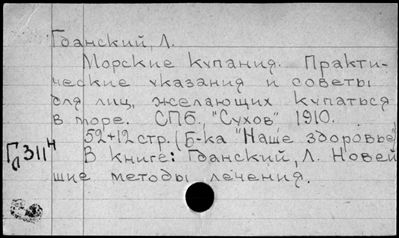 Гданский, Л.
Морские купания. Практи-
ческие указания и советы
для лиц, желающих купаться
в море. СПб. "Сухов" 1910.
52+12 стр. (Б-ка "Наше здоровье")
Гд 311н
В книге: Гданский, Л. Новей
шие методы лечения.